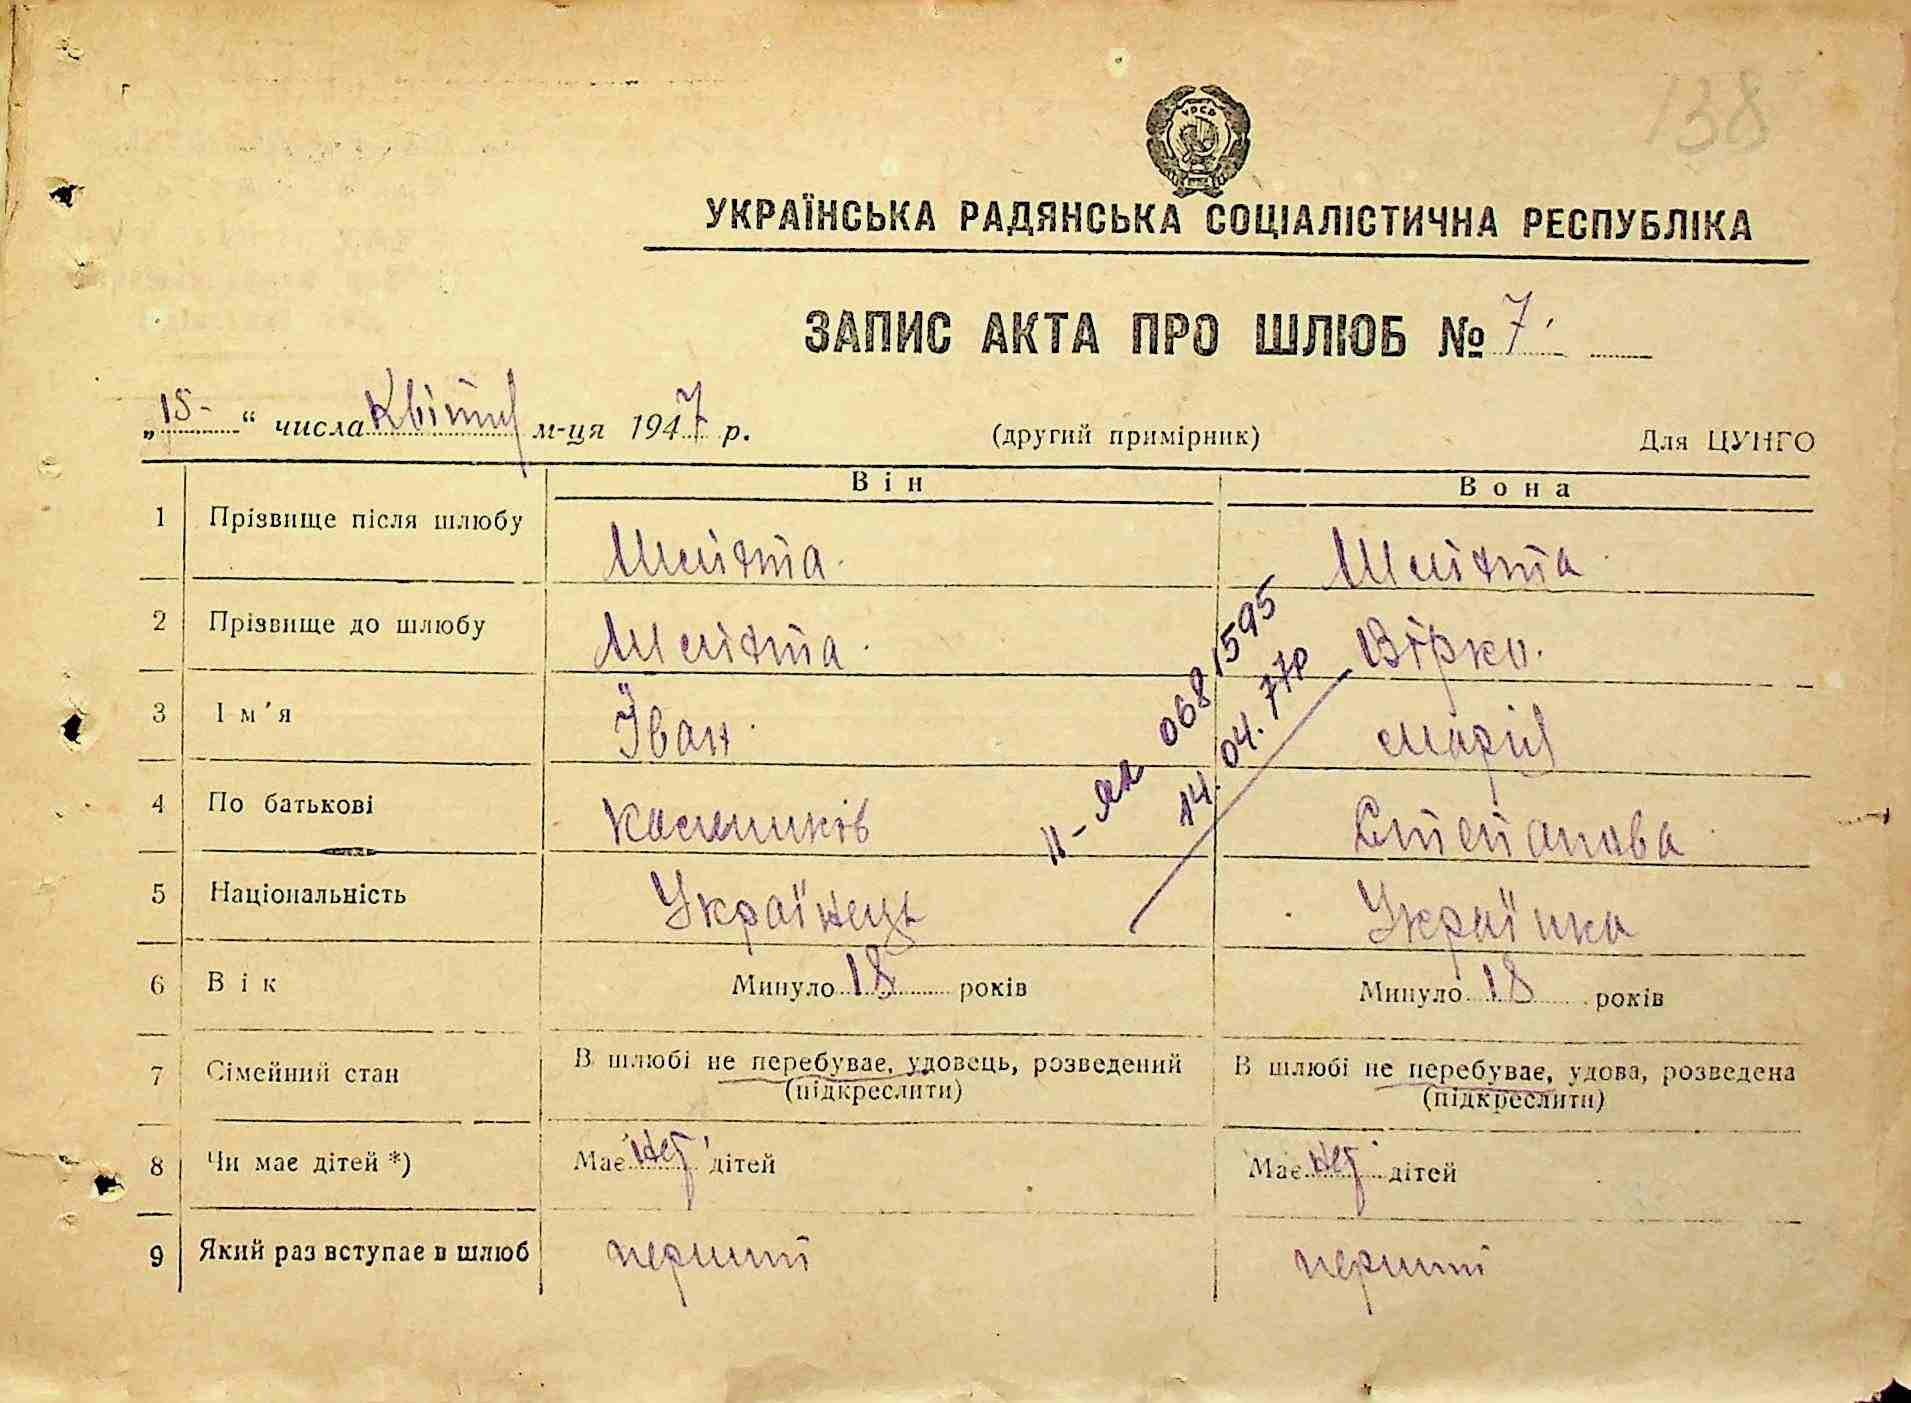 138
УРСР
УКРАЇНСЬКА РАДЯНСЬКА СОЦІАЛІСТИЧНА РЕСПУБЛІКА
ЗАПИС АКТА ПРО ШЛЮБ № 7.
„15-“ числа Квітня м-ця 1947 р. (другий примірник) Для ЦУНГО
Він Вона
1 Прізвище після шлюбу
2 Прізвище до шлюбу Вірко.
3 Ім’я Іван Марія
4 По батькові Степанова
5 Національність Українець Українка
6 Вік Минуло 18 років Минуло 18 років
7 Сімейний стан В шлюбі не перебуває, удовець, розведений В шлюбі не перебуває, удова, розведена
(підкреслити) (підкреслити)
8 Чи має дітей *) Має дітей Має дітей
9 Який раз вступає в шлюб перший перший
II-ЯЛ 0681595
14.04.77р